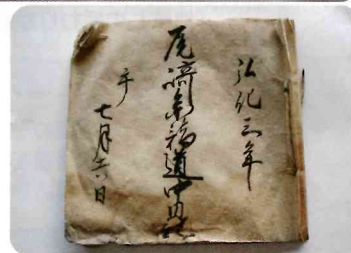 弘化三年
尾崎
道中日記
午
七月六日